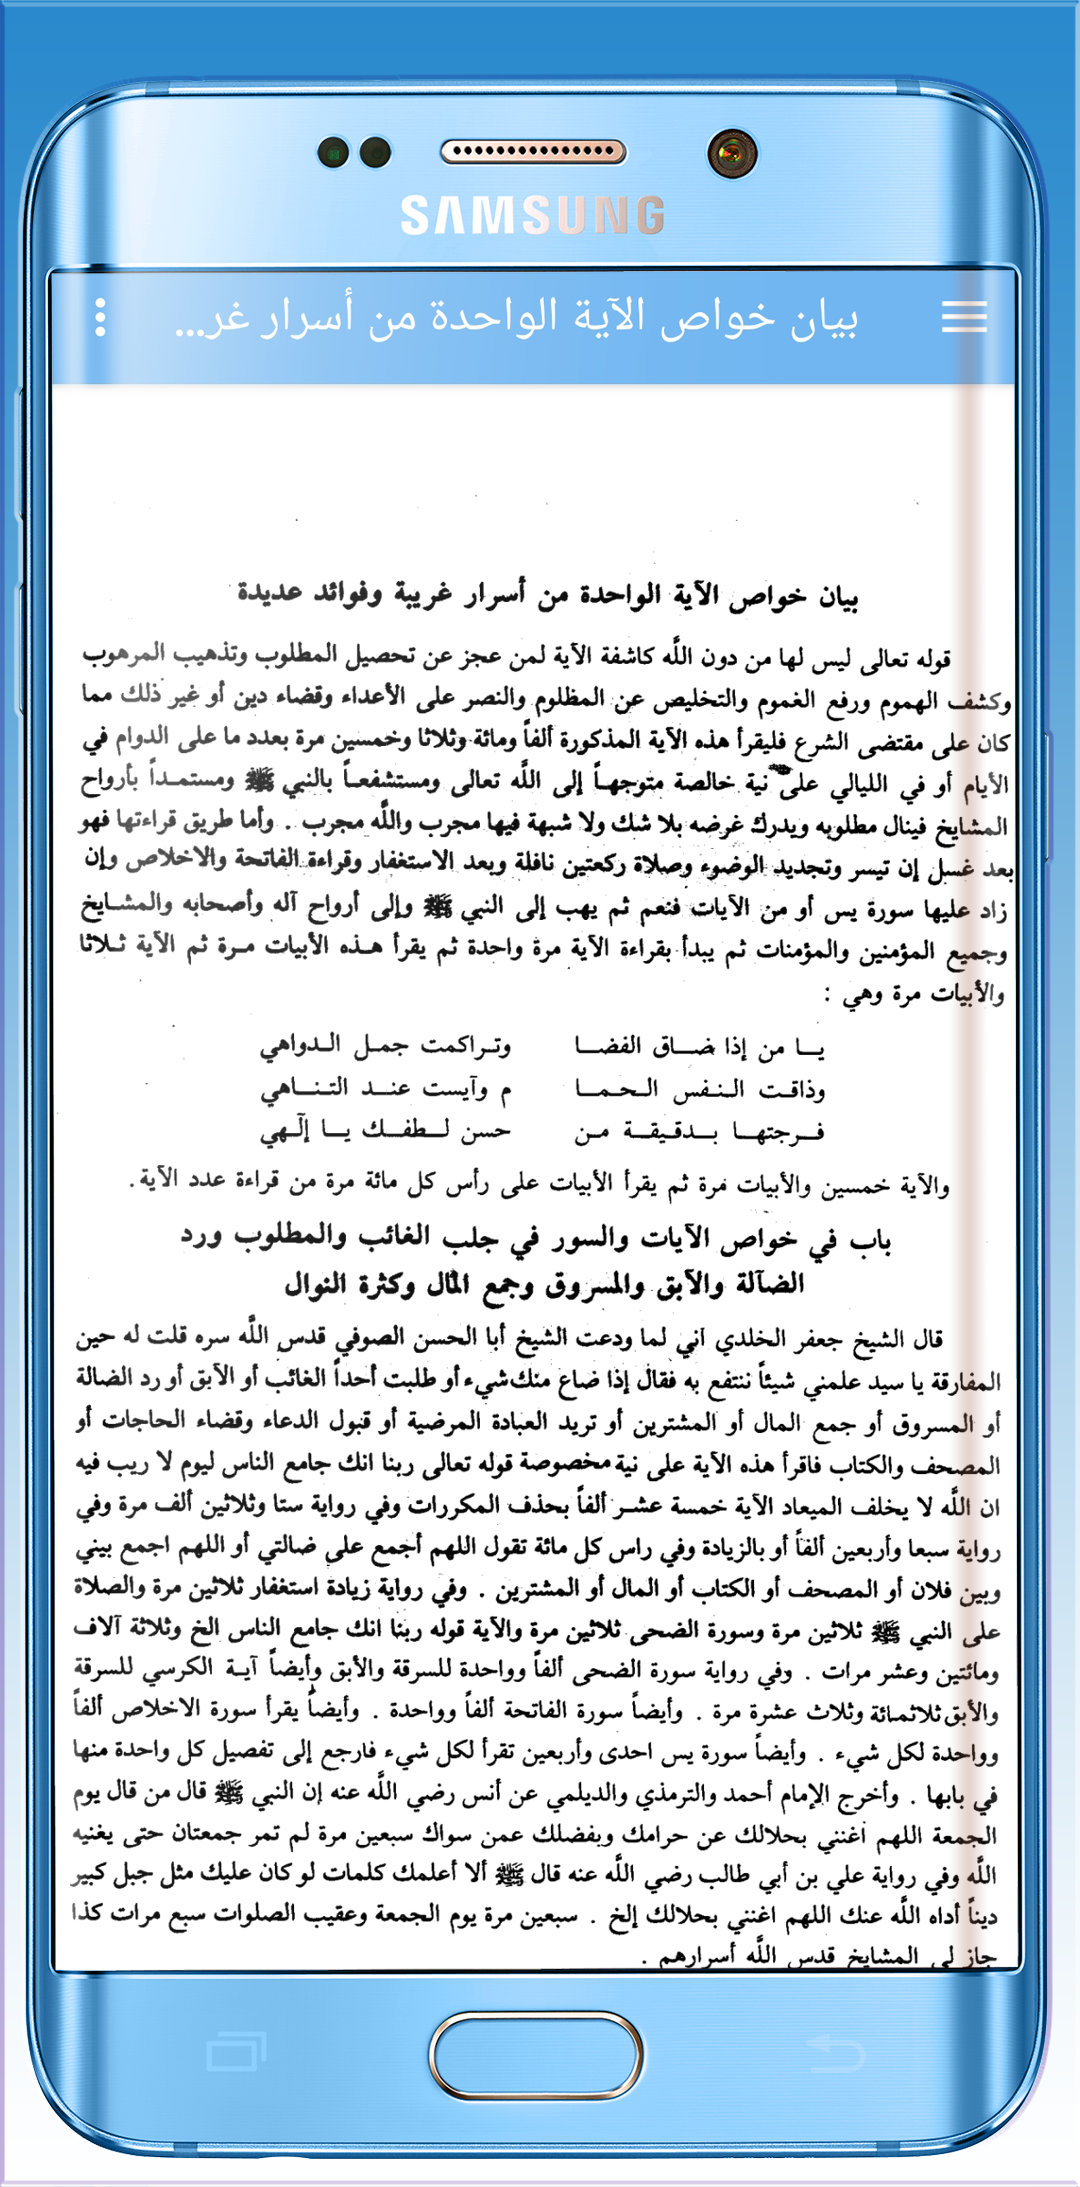 SAMSUNG
بيان خواص الآية الواحدة من أسرار غر...
بيان خواص الآية الواحدة من أسرار غريبة وفوائد عديدة
قوله تعالى ليس لها من دون اللّه كاشفة الآية لمن عجز عن تحصيل المطلوب وتذهيب المرهوب
وكشف الهموم ورفع الغموم والتخليص عن المظلوم والنصر على الأعداء وقضاء دين أو غير ذلك مما
كان على مقتضى الشرع فليقرأ هذه الآية المذكورة ألفاً ومائة وثلاثا وخمسين مرة بعدد ما على الدوام في
الأيام أو في الليالي على نية خالصة متوجهاً إلى اللّه تعالى ومستشفعاً بالنبي ﷺ ومستمداً بأرواح
المشايخ فينال مطلوبه ويدرك غرضه بلا شك ولا شبهة فيها مجرب واللّه مجرب . وأما طريق قراءتها فهو
بعد غسل إن تيسر وتجديد الوضوء وصلاة ركعتين نافلة وبعد الاستغفار وقراءة الفاتحة والاخلاص وإن
زاد عليها سورة يس أو من الآيات فنعم ثم يهب إلى النبي ﷺ وإلى أرواح آله وأصحابه والمشايخ
وجميع المؤمنين والمؤمنات ثم يبدأ بقراءة الآية مرة واحدة ثم يقرأ هذه الأبيات مرة ثم الآية ثلاثا
والأبيات مرة وهي :
يا من إذا ضاق الفضا وتراكمت جمل الدواهي
وذاقت النفس الحما م وآيست عند التناهي
فرجتها بدقيقة من حسن لطفك يا إلهي
والآية خمسين والأبيات مرة ثم يقرأ الأبيات على رأس كل مائة مرة من قراءة عدد الآية .
باب في خواص الآيات والسور في جلب الغائب والمطلوب ورد
الضآلة والآبق والمسروق وجمع المال وكثرة النوال
قال الشيخ جعفر الخلدي اني لما ودعت الشيخ أبا الحسن الصوفي قدس اللّه سره قلت له حين
المفارقة يا سيد علمني شيئاً ننتفع به فقال إذا ضاع منك شيء أو طلبت أحداً الغائب أو الآبق أو رد الضالة
أو المسروق أو جمع المال أو المشترين أو تريد العبادة المرضية أو قبول الدعاء وقضاء الحاجات أو
المصحف والكتاب فاقرأ هذه الآية على نية مخصوصة قوله تعالى ربنا انك جامع الناس ليوم لا ريب فيه
ان اللّه لا يخلف الميعاد الآية خمسة عشر ألفاً بحذف المكررات وفي رواية ستا وثلاثين ألف مرة وفي
رواية سبعا وأربعين ألفاً أو بالزيادة وفي راس كل مائة تقول اللهم أجمع علي ضالتي أو اللهم اجمع بيني
وبين فلان أو المصحف أو الكتاب أو المال أو المشترين . وفي رواية زيادة استغفار ثلاثين مرة والصلاة
على النبي ﷺ ثلاثين مرة وسورة الضحى ثلاثين مرة والآية قوله ربنا انك جامع الناس الخ وثلاثة آلاف
ومائتين وعشر مرات . وفي رواية سورة الضحى ألفاً وواحدة للسرقة والأبق وأيضاً آية الكرسي للسرقة
والأبق ثلاثمائة وثلاث عشرة مرة . وأيضاً سورة الفاتحة ألفاً وواحدة . وأيضاً يقرأ سورة الاخلاص ألفاً
وواحدة لكل شيء . وأيضاً سورة يس احدى وأربعين تقرأ لكل شيء فارجع إلى تفصيل كل واحدة منها
في بابها . وأخرج الإمام أحمد والترمذي والديلمي عن أنس رضي اللّه عنه إن النبي ﷺ قال من قال يوم
الجمعة اللهم اغنني بحلالك عن حرامك وبفضلك عمن سواك سبعين مرة لم تمر جمعتان حتى يغنيه
اللّه وفي رواية علي بن أبي طالب رضي اللّه عنه قال ﷺ ألا أعلمك كلمات لو كان عليك مثل جبل كبير
ديناً أداه اللّه عنك اللهم اغنني بحلالك إلخ . سبعين مرة يوم الجمعة وعقيب الصلوات سبع مرات كذا
جاز لي المشايخ قدس اللّه أسرارهم .